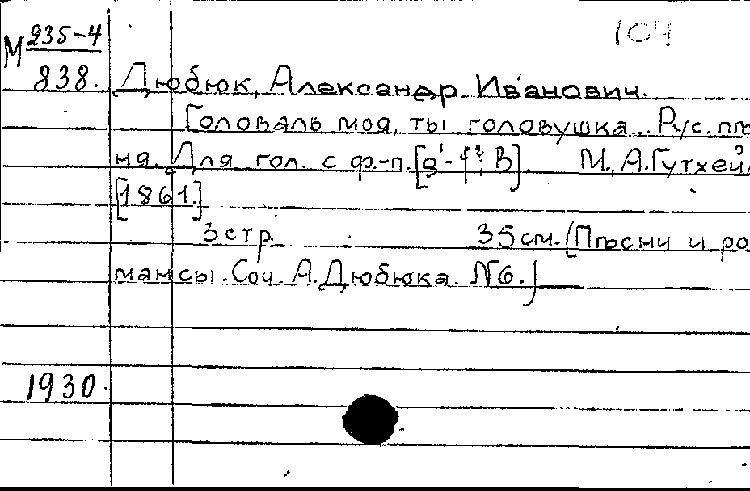 104
М 235-4
838. Дюбюк, Александр Иванович.
Головаль моя, ты головушка. Рус. пѣ
ня. Для гол. с ф.-п. [g¹-f², B]. М., А. Гутхей
[1861.]
3 стр. 35 см. (Пѣсни и ро
мансы. Соч. А. Дюбюка. №6.)
1930.